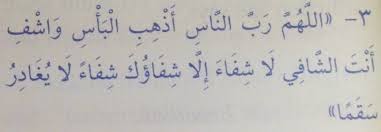 ٣- «اللَّهُمَّ رَبَّ النَّاسِ أَذْهِبِ الْبَأْسِ وَاشْفِ
أَنْتَ الشَّافِي لَا شِفَاءَ إِلَّا شِفَاؤُكَ شِفَاءً لَا يُغَادِرُ
سَقَمًا»